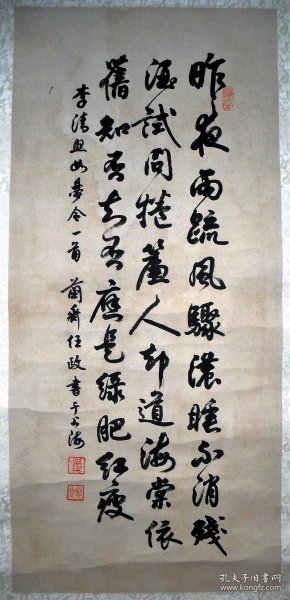 昨夜雨疏風驟濃睡不消殘
酒試問捲簾人却道海棠依
舊知否知否應是綠肥紅瘦
李清照如夢令一首 蘭齋任政書于上海
孔夫子旧书网
www.kongfz.com